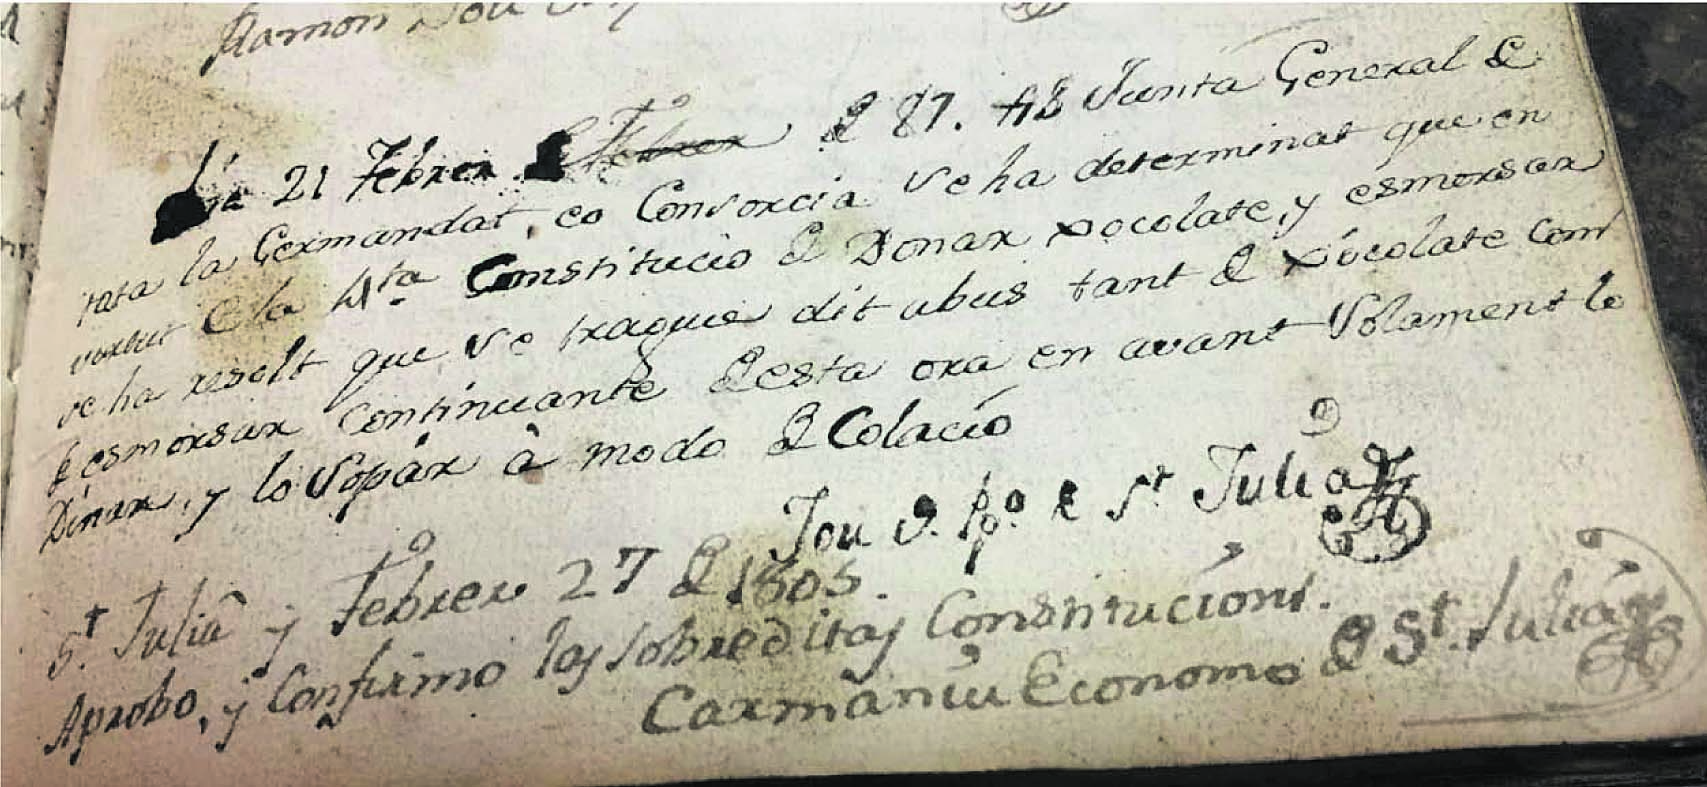 Ramon Jou
Dia 21 Febrer de Febrer de 87. Junta General de
tota la Germandat, eo Consorcia se ha determinat que en
virtut de la 4ta. Constitucio de Donar xocolate, y esmorsar
se ha resolt que se tragués dit abus tant de xócolate com
de esmorsar continuante desta ora en avant solament lo
Dinar, y lo sopár à modo de Colacío
Jou D. pº. de St Julià
St. Juliá y Febrer 27 de 1805.
Aprobo, y Confirmo las sobreditas Constitucións.
Carmaniu Economo de St. Juliá